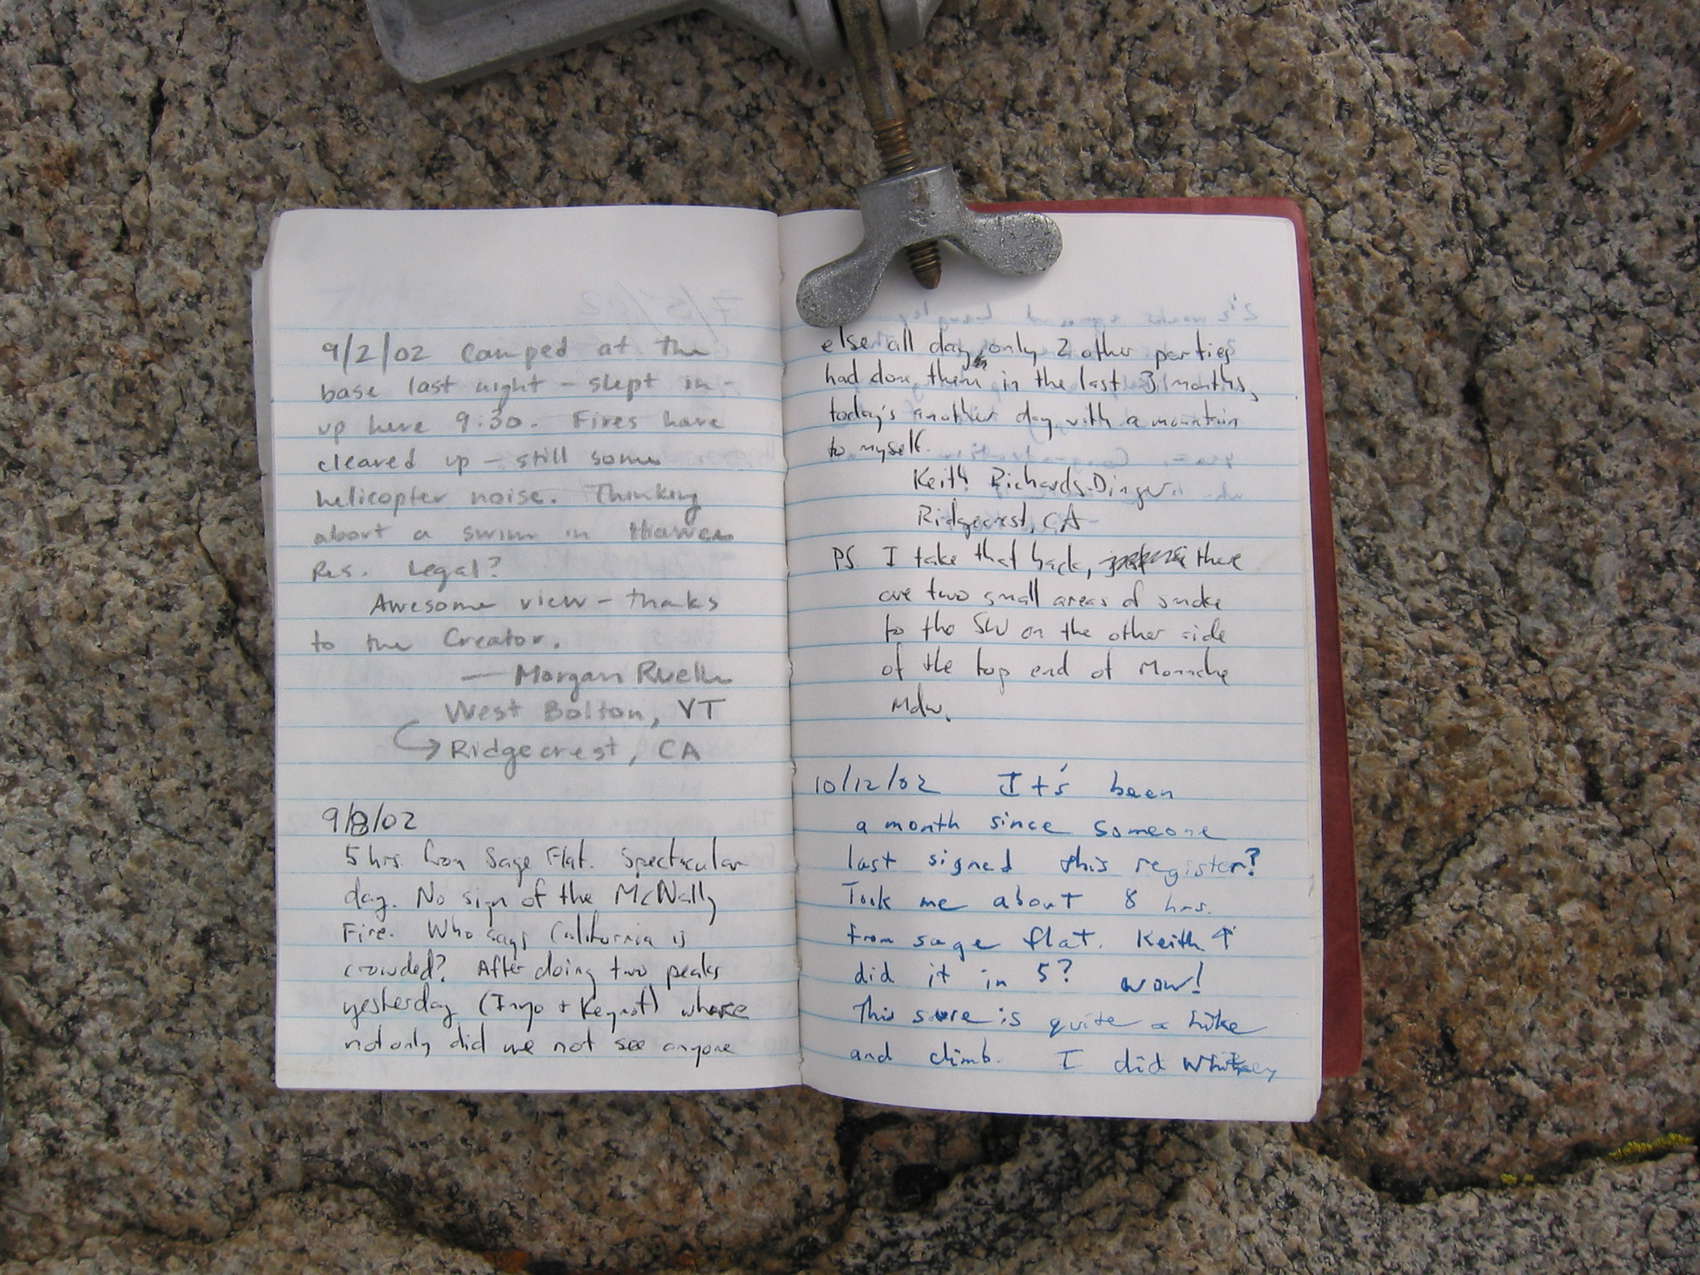 9/2/02 Camped at the
base last night – slept in –
up here 9:30. Fires have
cleared up – still some
helicopter noise. Thinking
about a swim in Haiwee
Res. Legal?
Awesome view – thanks
to the Creator.
— Morgan Ruelle
West Bolton, VT
Ridgecrest, CA
9/8/02
5 hrs. from Sage Flat. Spectacular
day. No sign of the McNally
Fire. Who says California is
crowded? After doing two peaks
yesterday (Inyo + Keynot) where
not only did we not see anyone
else all day, only 2 other parties
had done them in the last 3 months,
today's another day with a mountain
to myself.
Keith Richards-Dinger
Ridgecrest, CA
PS. I take that back, there
are two small areas of smoke
to the SW on the other side
of the top end of Monache
Mdw.
10/12/02 It's been
a month since someone
last signed this register?
Took me about 8 hrs.
from sage flat. Keith ↑
did it in 5? wow!
This sure is quite a hike
and climb. I did Whitney